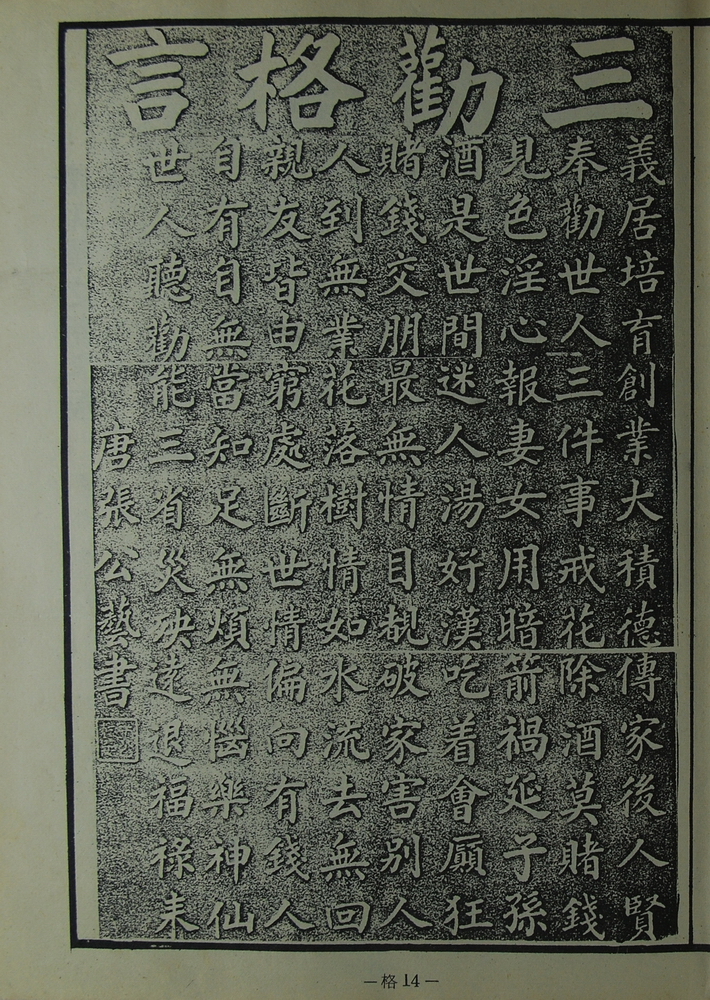 三勸格言
義居培育創業大積德傳家後人賢
奉勸世人三件事戒花除酒莫賭錢
見色淫心報妻女用暗箭禍延子孫
酒是世間迷人湯好漢吃着會顚狂
賭錢交朋最無情目覩破家害別人
人到無業花落樹情如水流去無回
親友皆由窮處斷世情偏向有錢人
自有自無當知足無煩無惱樂神仙
世人聽勸能三省災殃遠退福祿來
唐張公藝書
—格14—